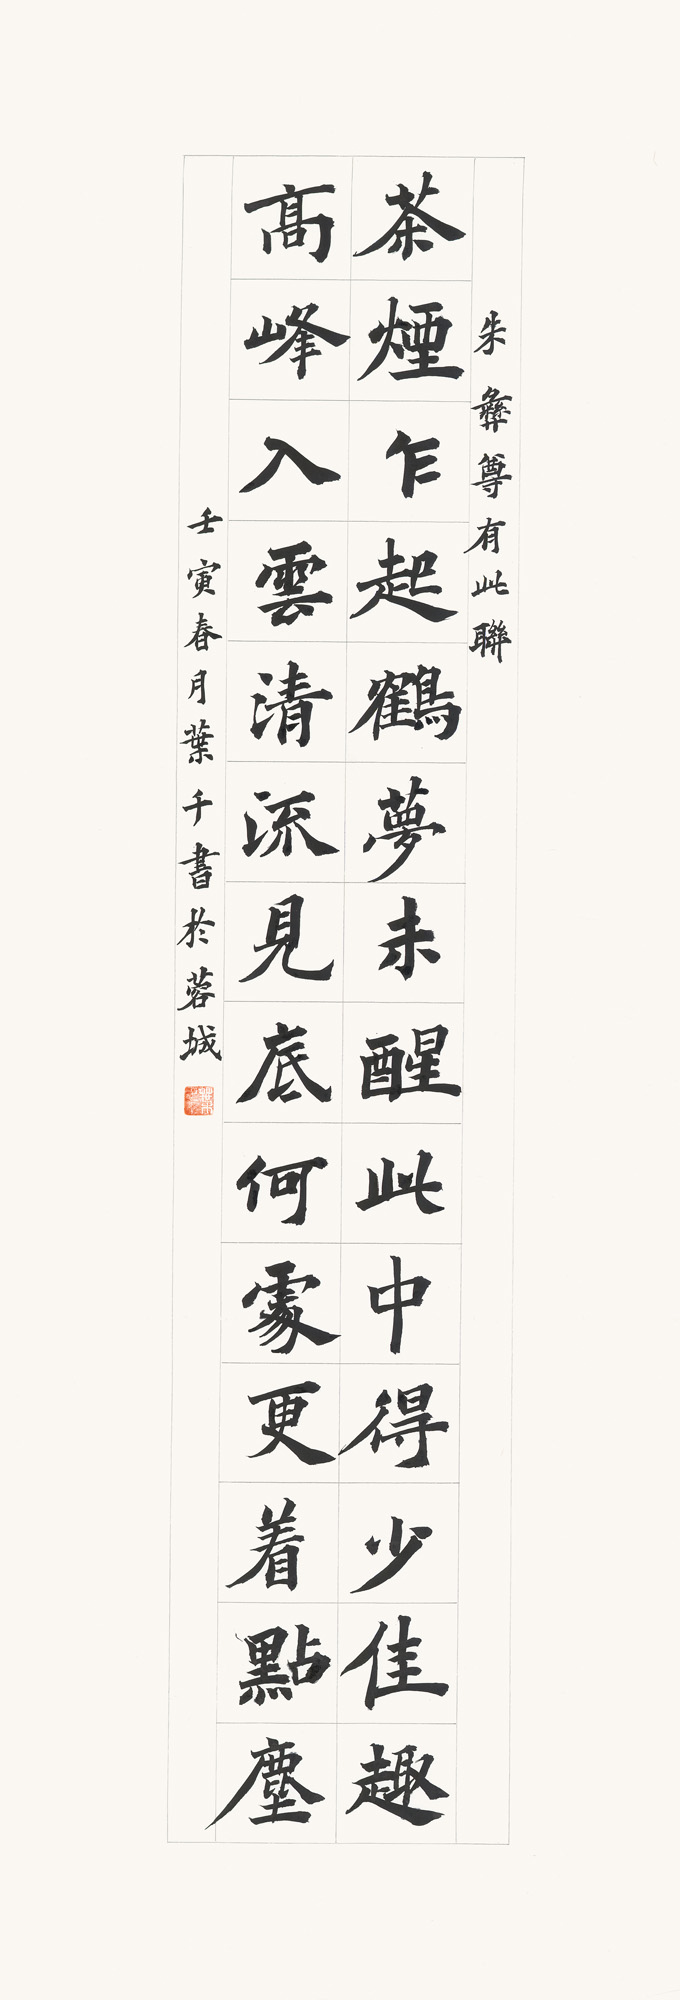 朱彝尊有此聯
茶煙乍起鶴夢未醒此中得少佳趣
高峰入雲清流見底何處更着點塵
壬寅春月葉千書於蓉城